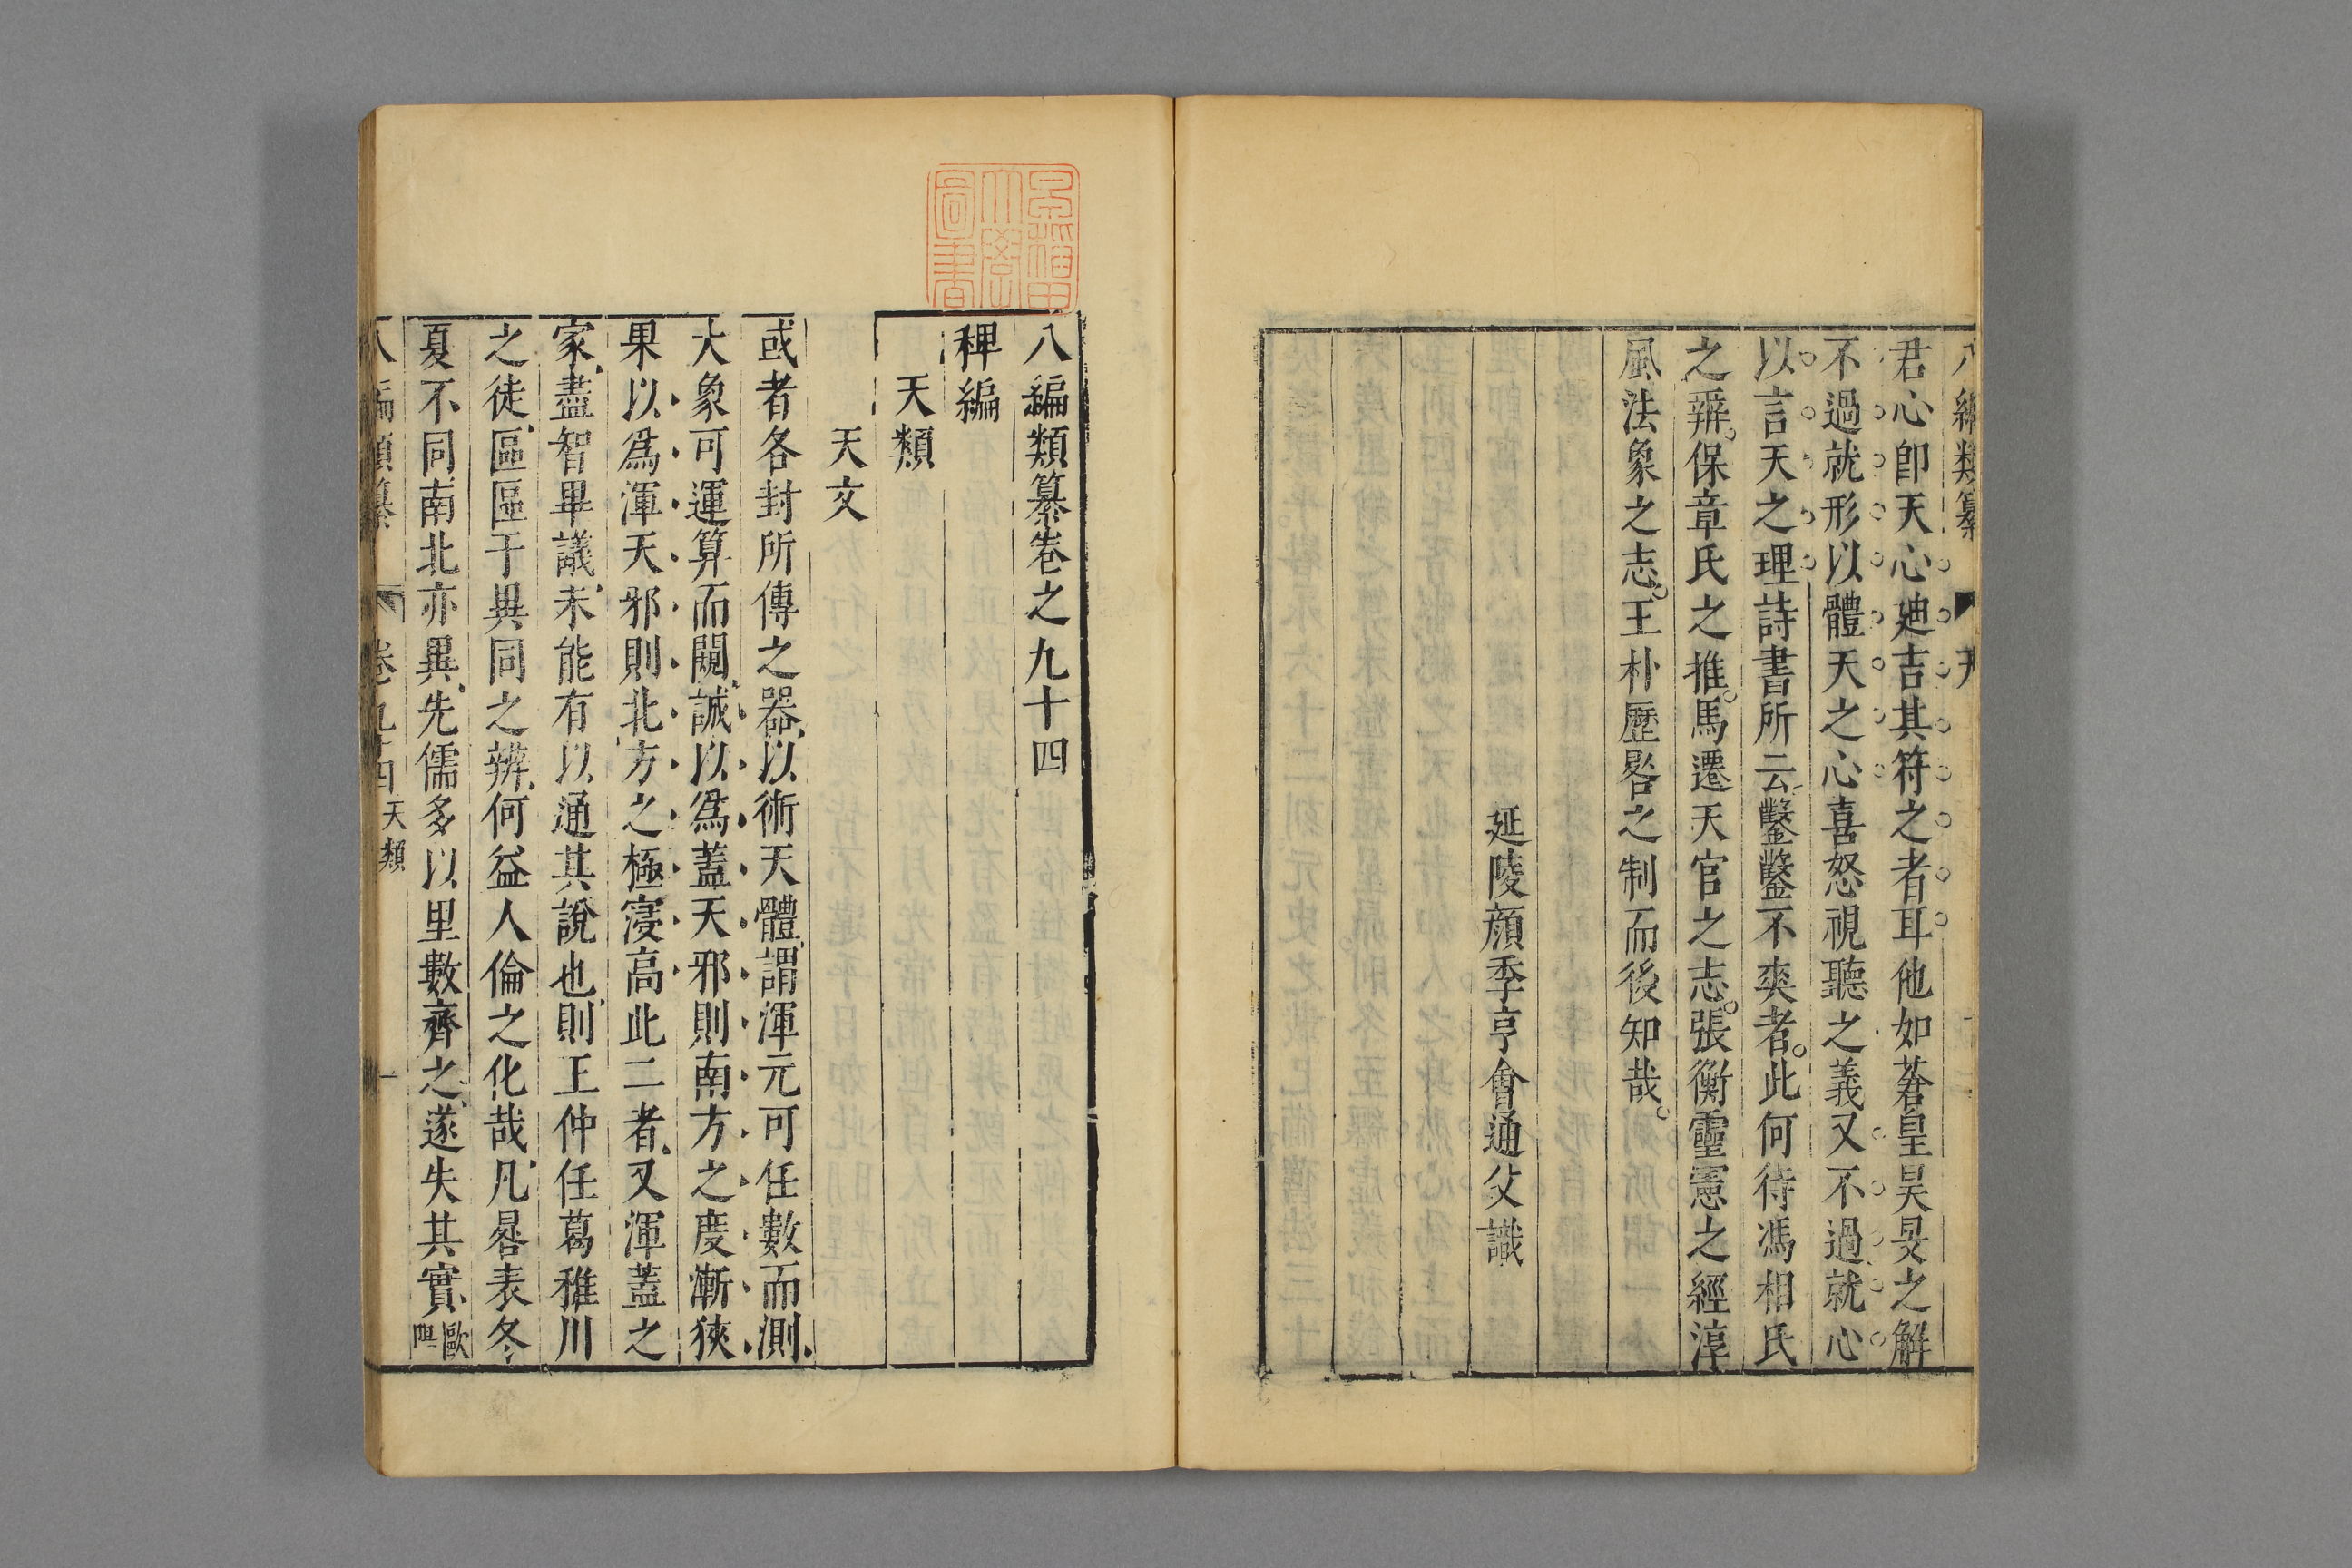 八編類纂 天
君心卽天心廸吉其符之者耳他如蒼皇昊旻之解
不過就形以體天之心喜怒視聽之義又不過就心
以言天之理詩書所云鑿鑿不爽者此何待馮相氏
之辨保章氏之推馬遷天官之志張衡靈憲之經淳
風法象之志王朴歷晷之制而後知哉
延陵顔季亨會通父識
早稲田大學圖書
八編類纂卷之九十四
稗編
天類
天文
或者各封所傳之器以術天體謂渾元可任數而測
大象可運算而闚誠以爲蓋天邪則南方之度漸狹
果以爲渾天邪則北方之極寖高此二者又渾蓋之
家盡智畢議未能有以通其說也則王仲任葛稚川
之徒區區于異同之辨何益人倫之化哉凡晷表冬
夏不同南北亦異先儒多以里數齊之遂失其實 歐
八編類纂 卷九十四 天類 一